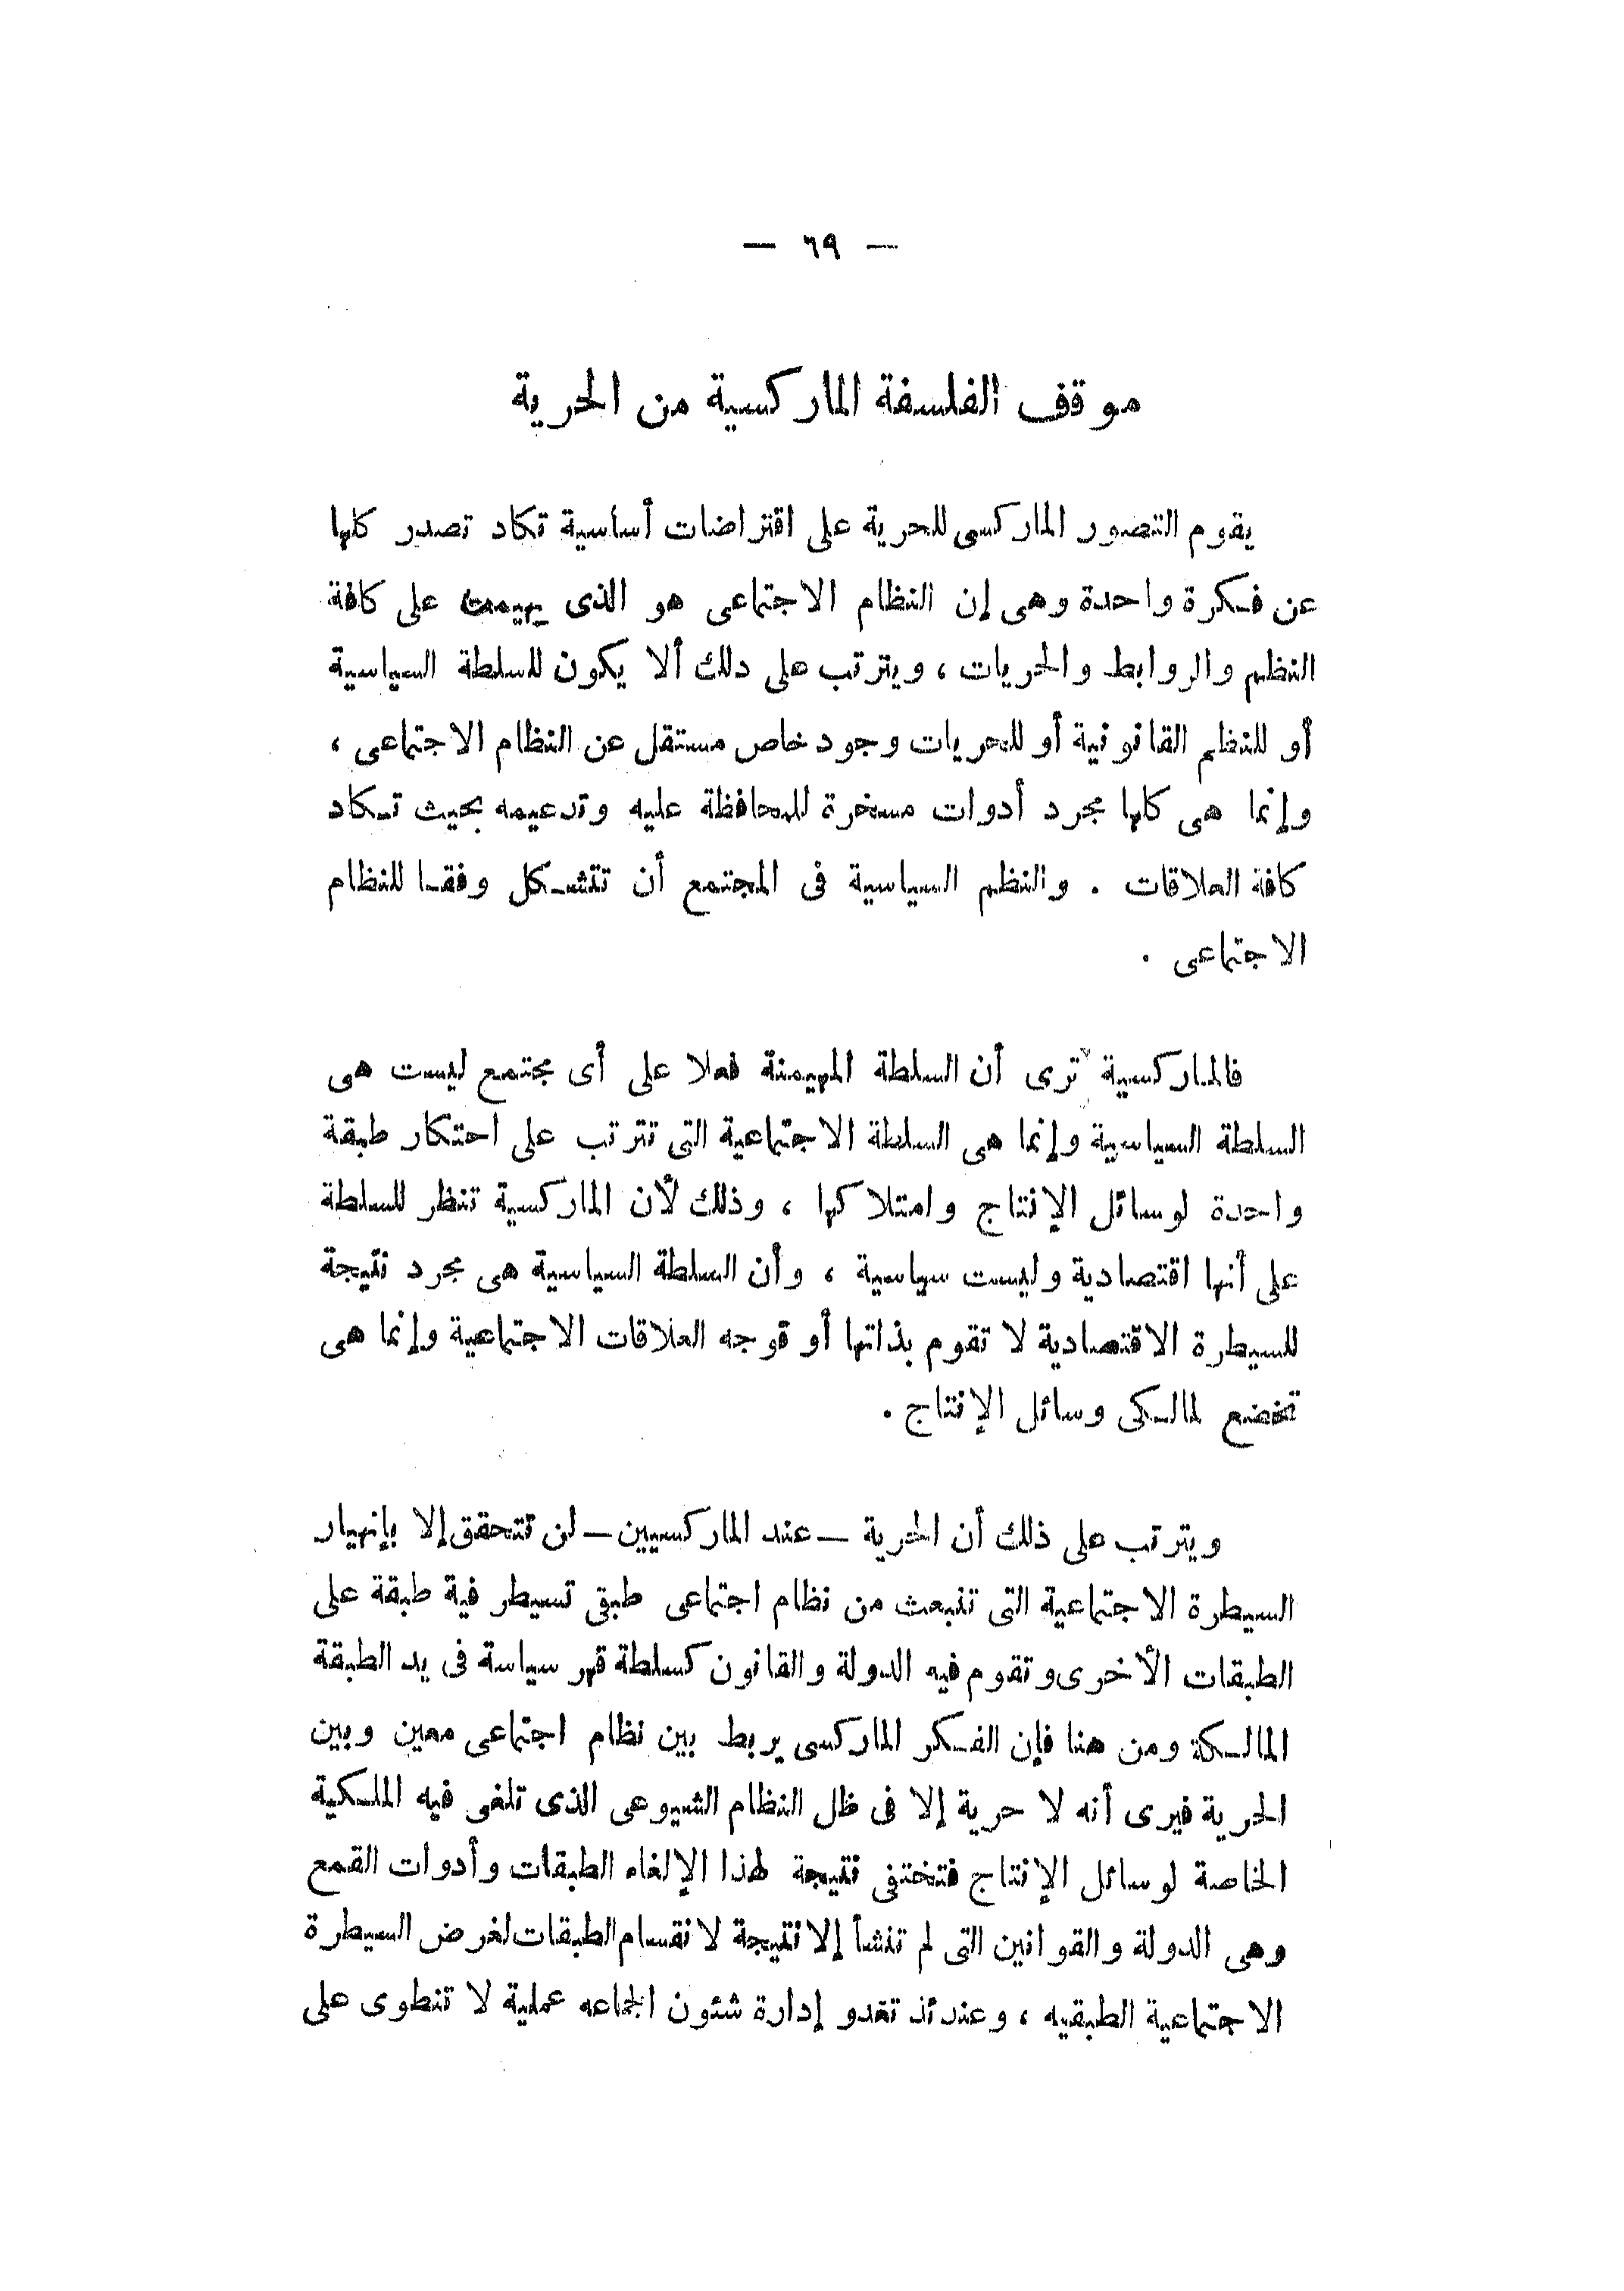 — ٦٩ —
موقف الفلسفة الماركسية من الحرية
يقوم التصور الماركسى للحرية على اقتراضات أساسية تكاد تصدر كلها
عن فكرة واحدة وهى إن النظام الاجتماعى هو الذى يهيمن على كافة
النظم والروابط والحريات ، ويترتب على دلك ألا يكون للسلطة السياسية
أو للنظم القانونية أو للحريات وجود خاص مستقل عن النظام الاجتماعى ،
وإنما هى كلها مجرد أدوات مسخرة للمحافظة عليه وتدعيمه بحيث تكاد
كافة العلاقات . والنظم السياسية فى المجتمع أن تتشكل وفقا للنظام
الاجتماعى .
فالماركسية ترى أن السلطة المهيمنة فعلا على أى مجتمع ليست هى
السلطة السياسية وإنما هى السلطة الاجتماعية التى تترتب على احتكار طبقة
واحدة لوسائل الإنتاج وامتلاكها ، وذلك لأن الماركسية تنظر للسلطة
على أنها اقتصادية وليست سياسية ، وأن السلطة السياسية هى مجرد نتيجة
للسيطرة الاقتصادية لا تقوم بذاتها أو قوجه العلاقات الاجتماعية وإنما هى
تخضع لمالكى وسائل الإنتاج .
ويترتب على ذلك أن الحرية – عند الماركسيين – لن تتحقق إلا بإنهيار
السيطرة الاجتماعية التى تنبعث من نظام اجتماعى طبقى تسيطر فية طبقة على
الطبقات الأخرى وتقوم فيه الدولة والقانون كسلطة قهر سياسة فى يد الطبقة
المالكة ومن هنا فإن الفكر الماركسى يربط بين نظام اجتماعى معين وبين
الحرية فيرى أنه لا حرية إلا فى ظل النظام الشيوعى الذى تلغى فيه الملكية
الخاصة لوسائل الإنتاج فتختفى نتيجة لهذا الإلغاء الطبقات وأدوات القمع
وهى الدولة والقوانين التى لم تنشأ إلا نتيجة لانقسام الطبقات لغرض السيطرة
الاجتماعية الطبقيه ، وعندئذ تغدو إدارة شئون الجماعه عملية لا تنطوى على